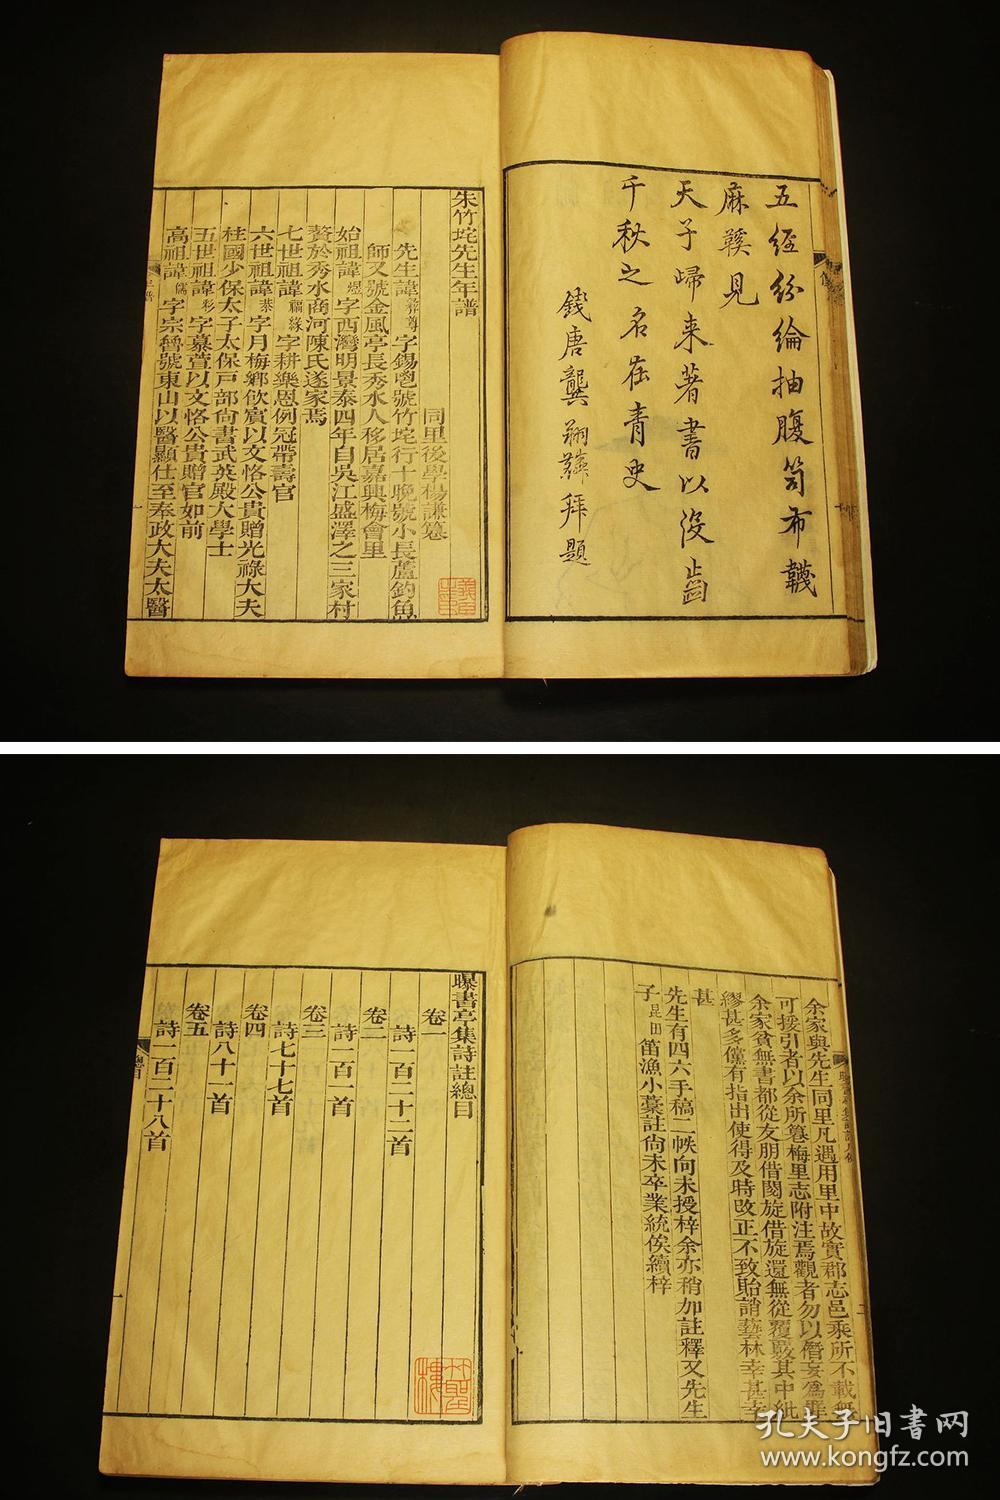 五經紛綸抽腹笥布韈
麻鞵見
天子歸来著書以没齒
千秋之名在青史
錢唐龔翔麟拜題
朱竹垞先生年譜
同里後學楊謙篹
先生諱彝尊字錫鬯號竹垞行十晚號小長蘆釣魚
師又號金風亭長秀水人移居嘉興梅會里
始祖諱煜字西灣明景泰四年自吳江盛澤之三家村
贅於秀水商河陳氏遂家焉
七世祖諱福緣字耕樂恩例冠帶壽官
六世祖諱恭字月梅鄉飲賓以文恪公貴贈光祿大夫
柱國少保太子太保戸部尚書武英殿大學士
五世祖諱彩字慕萱以文恪公貴贈官如前
高祖諱儒字宗魯號東山以醫顯仕至奉政大夫太醫
年譜
一
余家與先生同里凡遇用里中故實郡志邑乘所不載無
可援引者以余所篹梅里志附注焉觀者勿以僭妄爲罪
余家貧無書都從友朋借閱旋借旋還無從覆覈其中紕
繆甚多儻有指出使得及時改正不致貽誚藝林幸甚幸
甚
先生有四六手稿二帙向未授梓余亦稍加註釋又先生
子昆田笛漁小藁註尚未卒業統俟續梓
二
曝書亭集詩註總目
卷一
詩一百二十二首
卷二
詩二百一首
卷三
詩七十七首
卷四
詩八十一首
卷五
詩一百二十八首
總目
一
孔夫子旧書网
www.kongfz.com